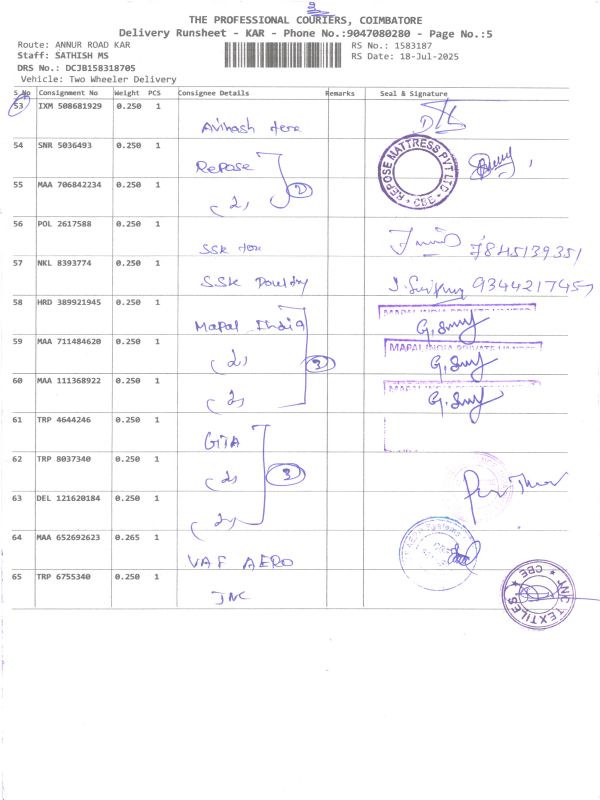 THE PROFESSIONAL COURIERS, COIMBATORE
Delivery Runsheet - KAR - Phone No.:9047080280 - Page No.:5
Route: ANNUR ROAD KAR
RS No.: 1583187
Staff: SATHISH MS
RS Date: 18-Jul-2025
DRS No.: DCJB158318705
Vehicle: Two Wheeler Delivery
S.No Consignment No Weight PCS Consignee Details Remarks Seal & Signature
53 IXM 508681929 0.250 1
Avinash
54 SNR 5036493 0.250 1
Repose
REPOSE MATTRESS PVT LTD * CBE *
55 MAA 706842234 0.250 1
(2) 2
56 POL 2617588 0.250 1
SSK 7845139351
57 NKL 8393774 0.250 1
SSK Poultry 9344217457
58 HRD 389921945 0.250 1
Mapal India MAPAL INDIA PRIVATE LIMITED
59 MAA 711484620 0.250 1
(2) 3 MAPAL INDIA PRIVATE LIMITED
60 MAA 111368922 0.250 1
(2) MAPAL INDIA PRIVATE LIMITED
61 TRP 4644246 0.250 1
GTA
62 TRP 8037340 0.250 1
(2) 3
63 DEL 121620184 0.250 1
(2)
64 MAA 652692623 0.265 1
VAF AERO
65 TRP 6755340 0.250 1
JNC
JNC TEXTILES * CBE *